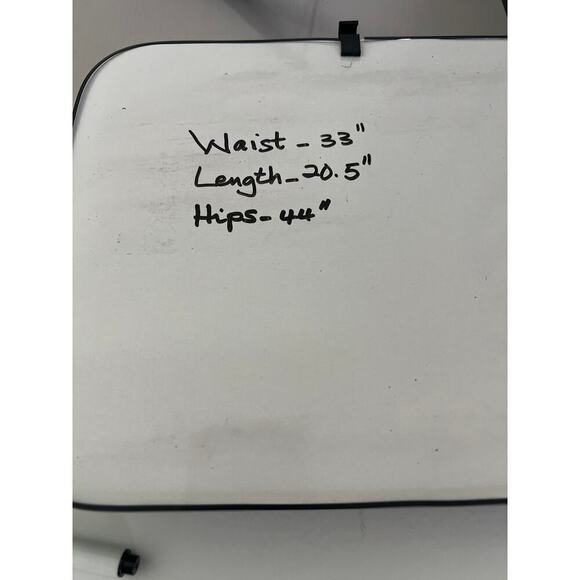 Waist - 33"
Length - 20.5"
Hips - 44"